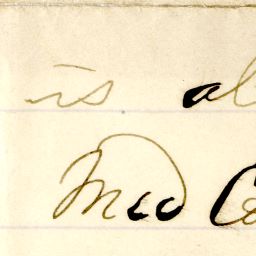 is al
Med Co